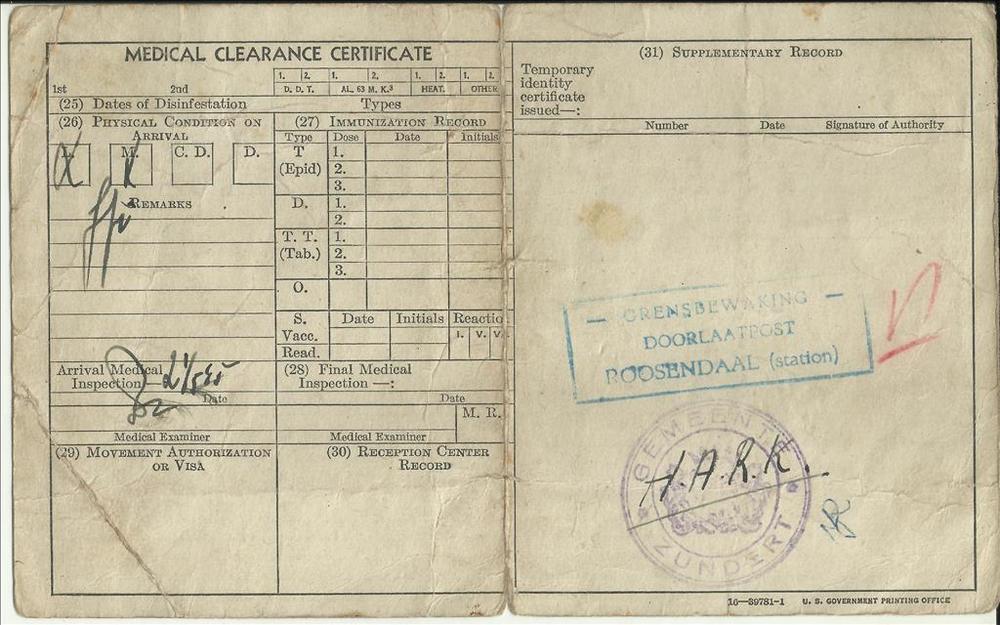 MEDICAL CLEARANCE CERTIFICATE
1. 2. 1. 2. 1. 2. 1. 2.
1st 2nd D. D. T. AL. 63 M. K.³ HEAT. OTHER
(25) Dates of Disinfestation Types
(26) PHYSICAL CONDITION ON ARRIVAL
L. M. C. D. D.
REMARKS
(27) IMMUNIZATION RECORD
Type Dose Date Initials
T 1.
(Epid) 2.
3.
D. 1.
2.
T. T. 1.
(Tab.) 2.
3.
O.
S. Date Initials Reactio
Vacc. I. V. V
Read.
Arrival Medical
Inspection—
Date
Medical Examiner
(28) Final Medical
Inspection—:
Date
M. R.
Medical Examiner
(29) MOVEMENT AUTHORIZATION
OR VISA
(30) RECEPTION CENTER
RECORD
(31) SUPPLEMENTARY RECORD
Temporary
identity
certificate
issued—:
Number Date Signature of Authority
— GRENSBEWAKING —
DOORLAATPOST
ROOSENDAAL (station)
GEMEENTE
H.A.R.K.
ZUNDERT
16—39781-1 U. S. GOVERNMENT PRINTING OFFICE